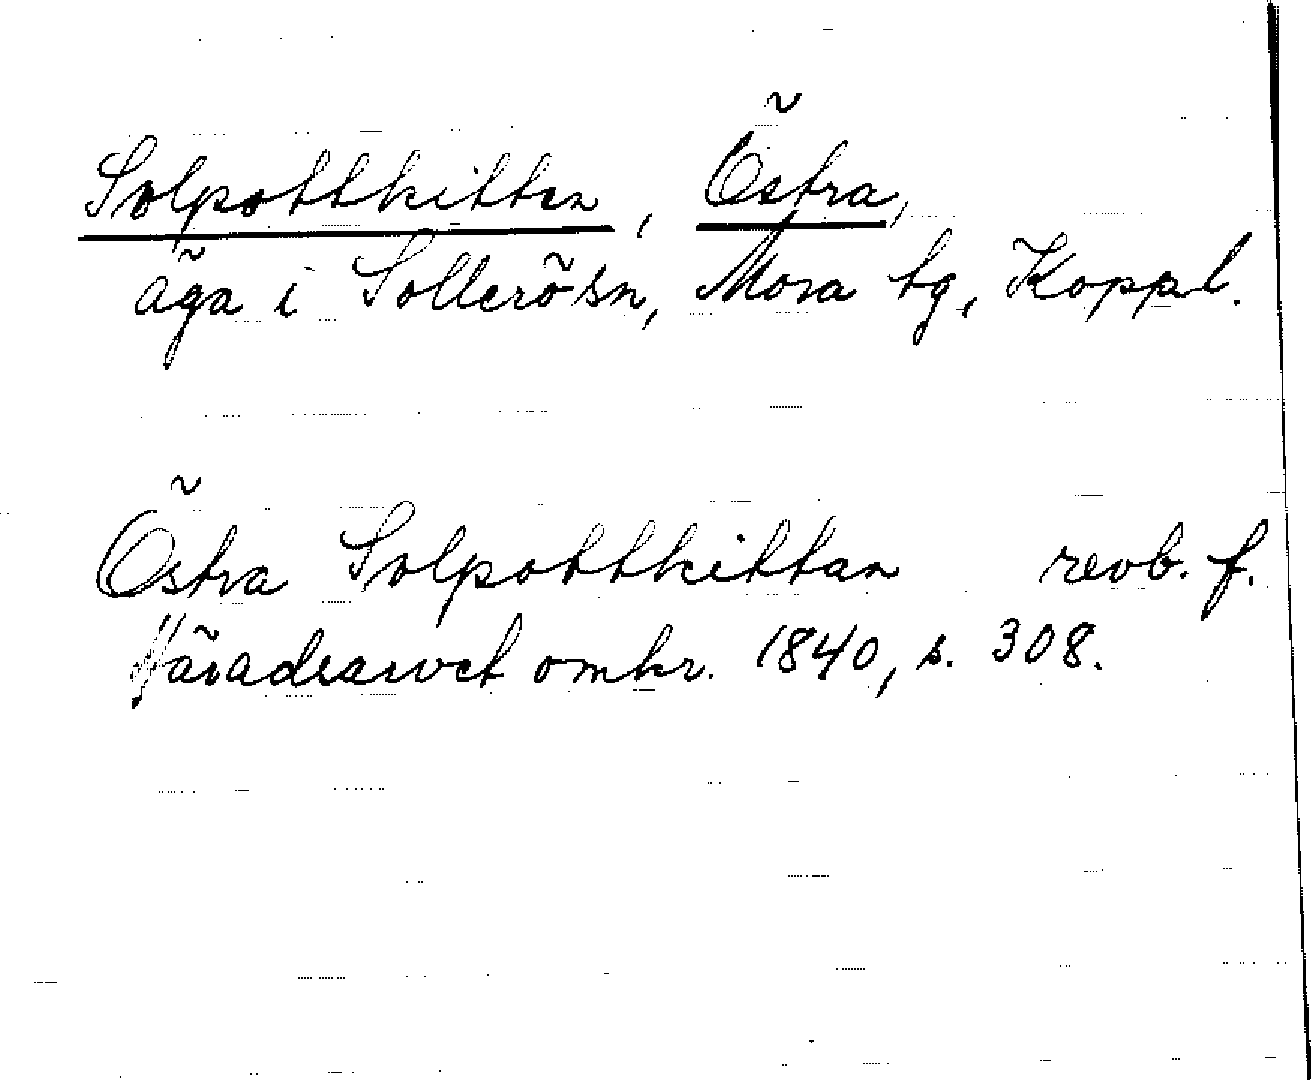 Solpottkittan, Östra,
äga i Sollerö sn, Mora tg, Koppl.
Östra Solpottkittan revb. f.
Häradsarvet omkr. 1840, s. 308.